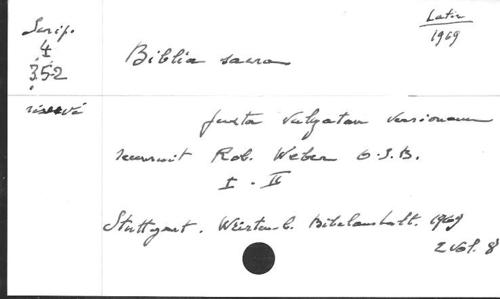 Scrip.
4
352
réservé
Latin
1969
Biblia sacra
juxta Vulgatam Versionem
recensuit Rob. Weber O.S.B.
I - II
Stuttgart. Württemb. Bibelanstalt. 1969
2 vol. 8°